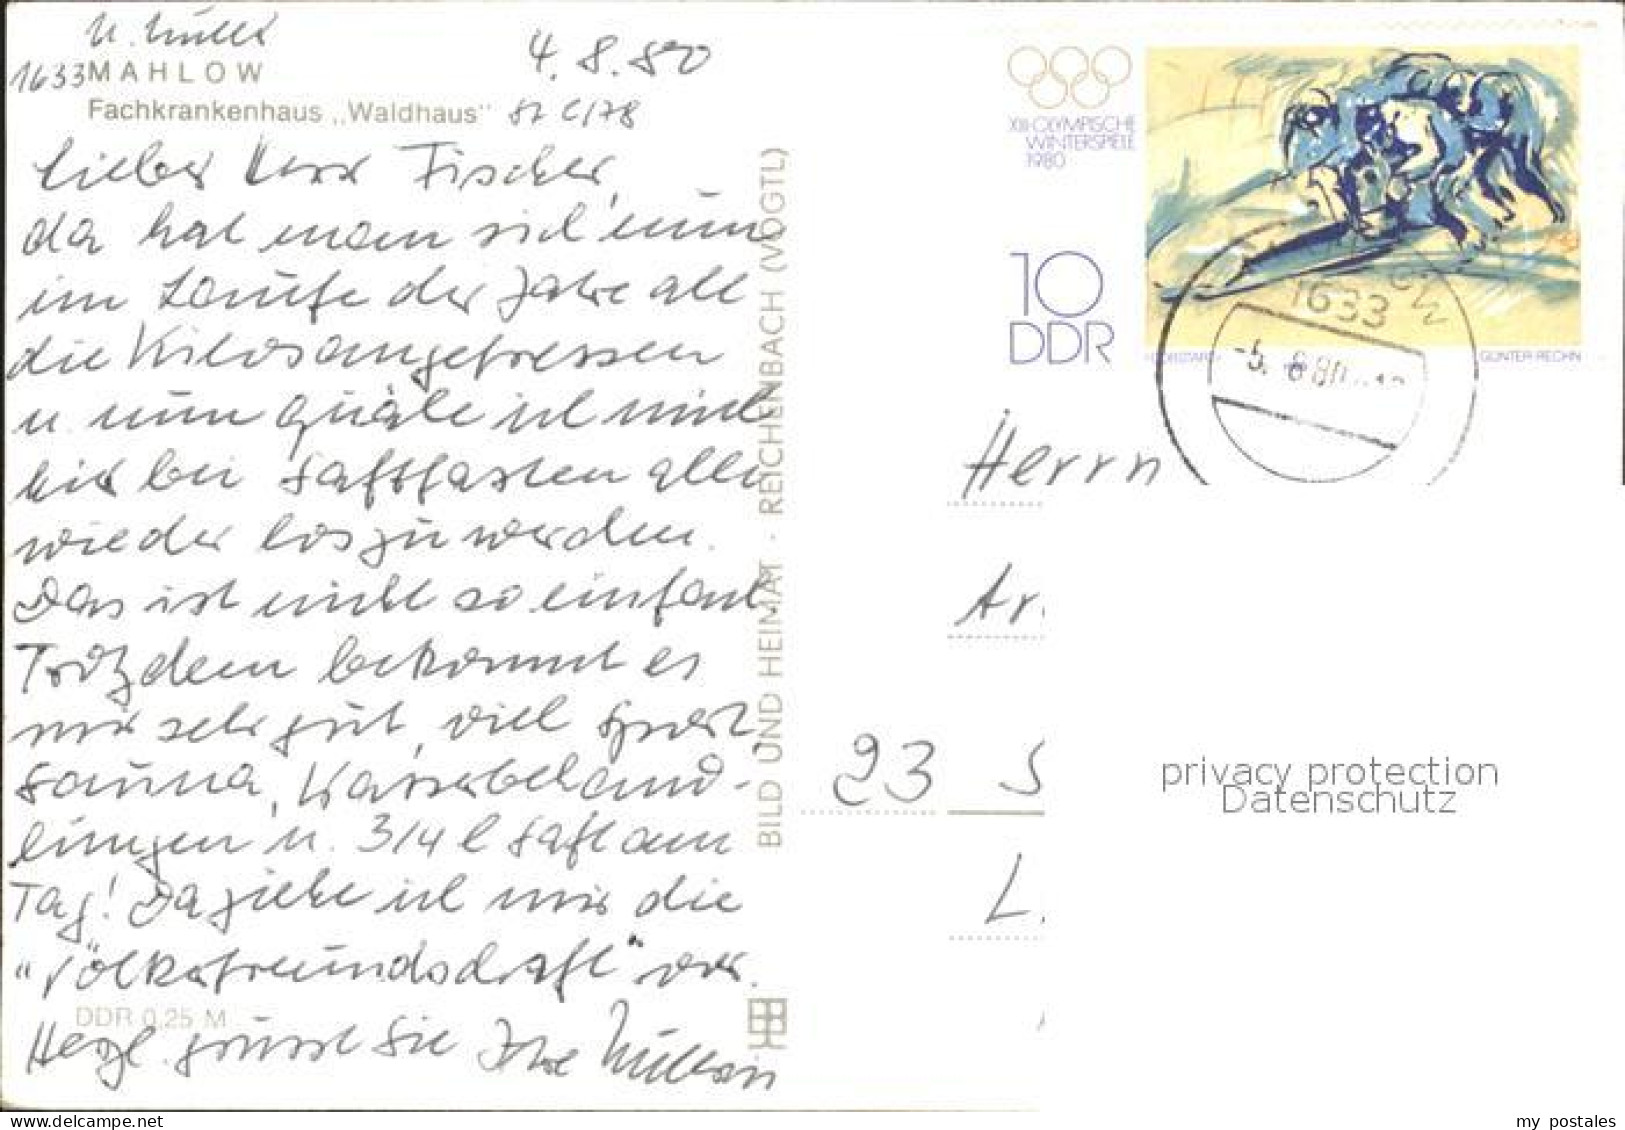 4.8.80
1633 MAHLOW
Fachkrankenhaus „Waldhaus"
Lieber Herr Fischer,
da hat man sich nun
im Laufe der Jahre all
die Kilos angefressen
u. nun quäle ich mich
hier bei Saftfasten alles
wieder loszuwerden.
Das ist nicht so einfach.
Trotzdem bekommt es
mir sehr gut, viel Sport,
Sauna, Wasserbehand-
lungen u. 3/4 l Saft am
Tag! Da ziehe ich mir die
"Völkerfreundschaft" vor.
DDR 0,25 M
Herzl. grüsst Sie Ihre
BILD UND HEIMAT · REICHENBACH (VOGTL)
XIII. OLYMPISCHE
WINTERSPIELE
1980
10
DDR
GÜNTER RECHN
1633
Herrn
23 S
L.
privacy protection
Datenschutz
my postales